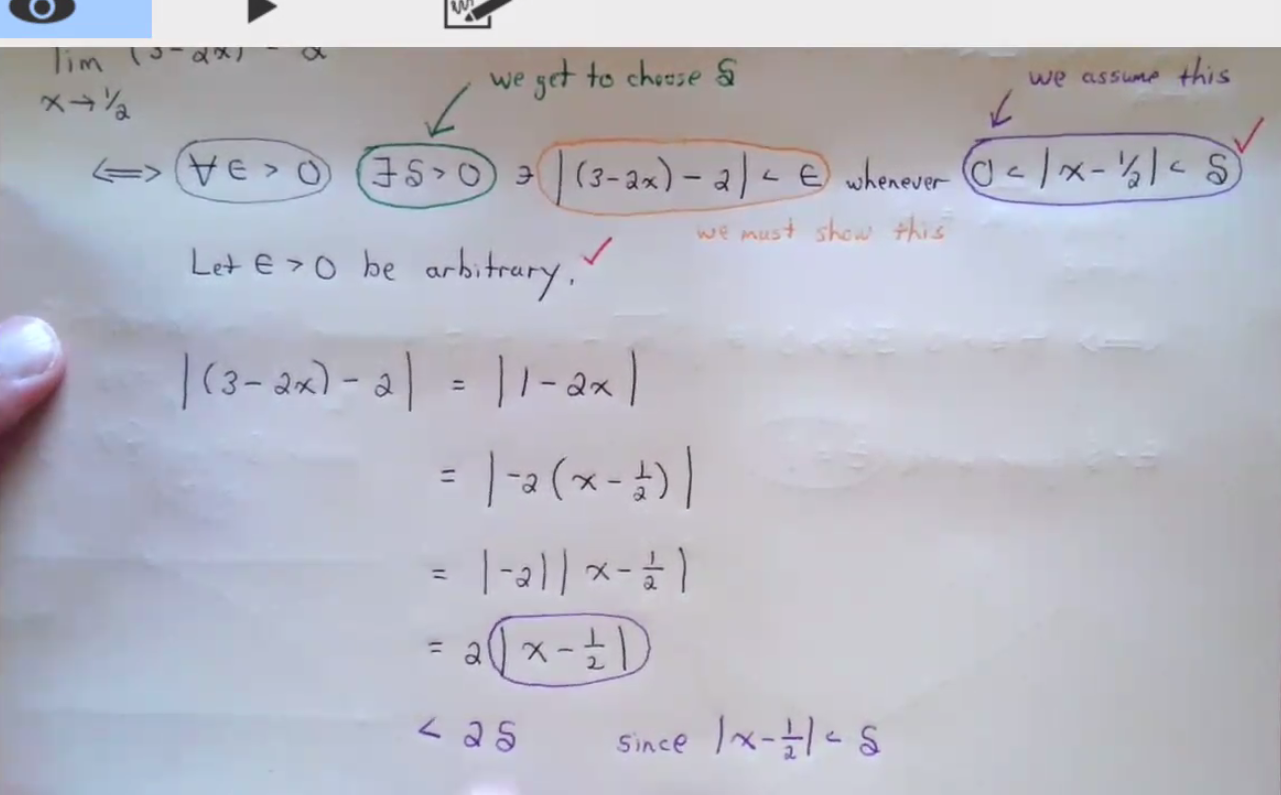 lim (3-2x) = 2
x→½
we get to choose δ
we assume this
⟺ ∀ϵ > 0 ∃δ > 0 ∍ |(3-2x) - 2| < ϵ whenever 0 < |x-½| < δ
we must show this
Let ϵ > 0 be arbitrary.
|(3-2x) - 2| = |1-2x|
= |-2(x-1/2)|
= |-2||x-1/2|
= 2|x-1/2|
< 2δ since |x-1/2| < δ